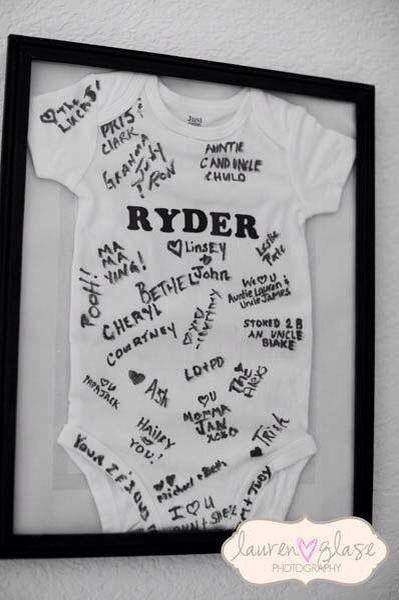 ♡ The
Lucas!
Just
PRIS &
CLARK
GRANMA
JUDY
TRON
AUNTIE
C AND UNCLE
CHULO
RYDER
MA
MA
YING!
POOH!
♡ LINSEY
John
Leslie
BETHEL
We ♡ U
Auntie Lauren &
Uncle James
CHERYL
COURTNEY
STOKED 2 B
AN UNCLE
BLAKE
LD+PD
The
Alexs
♡ U
PAPA JACK
♥ Ash
♡ U
MOMMA
JAN
XOXO
HAILEY
♡
YOU!
♡ Trish
YOUR
♥♥
Michael + Beth
I ♡ U
+ JUDY
lauren ♡ glase
PHOTOGRAPHY